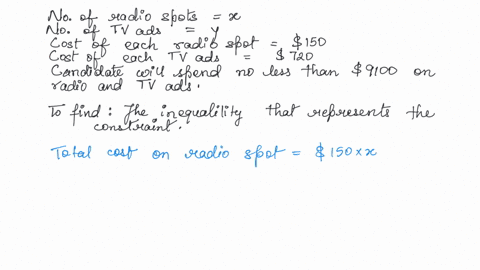 No. of radio spots = x
No. of TV ads = y
Cost of each radio spot = $150
Cost of each TV ads = $720
Candidate will spend no less than $9100 on
radio and TV ads.
To find : The inequality that represents the
constraint.
Total cost on radio spot = $150 × x